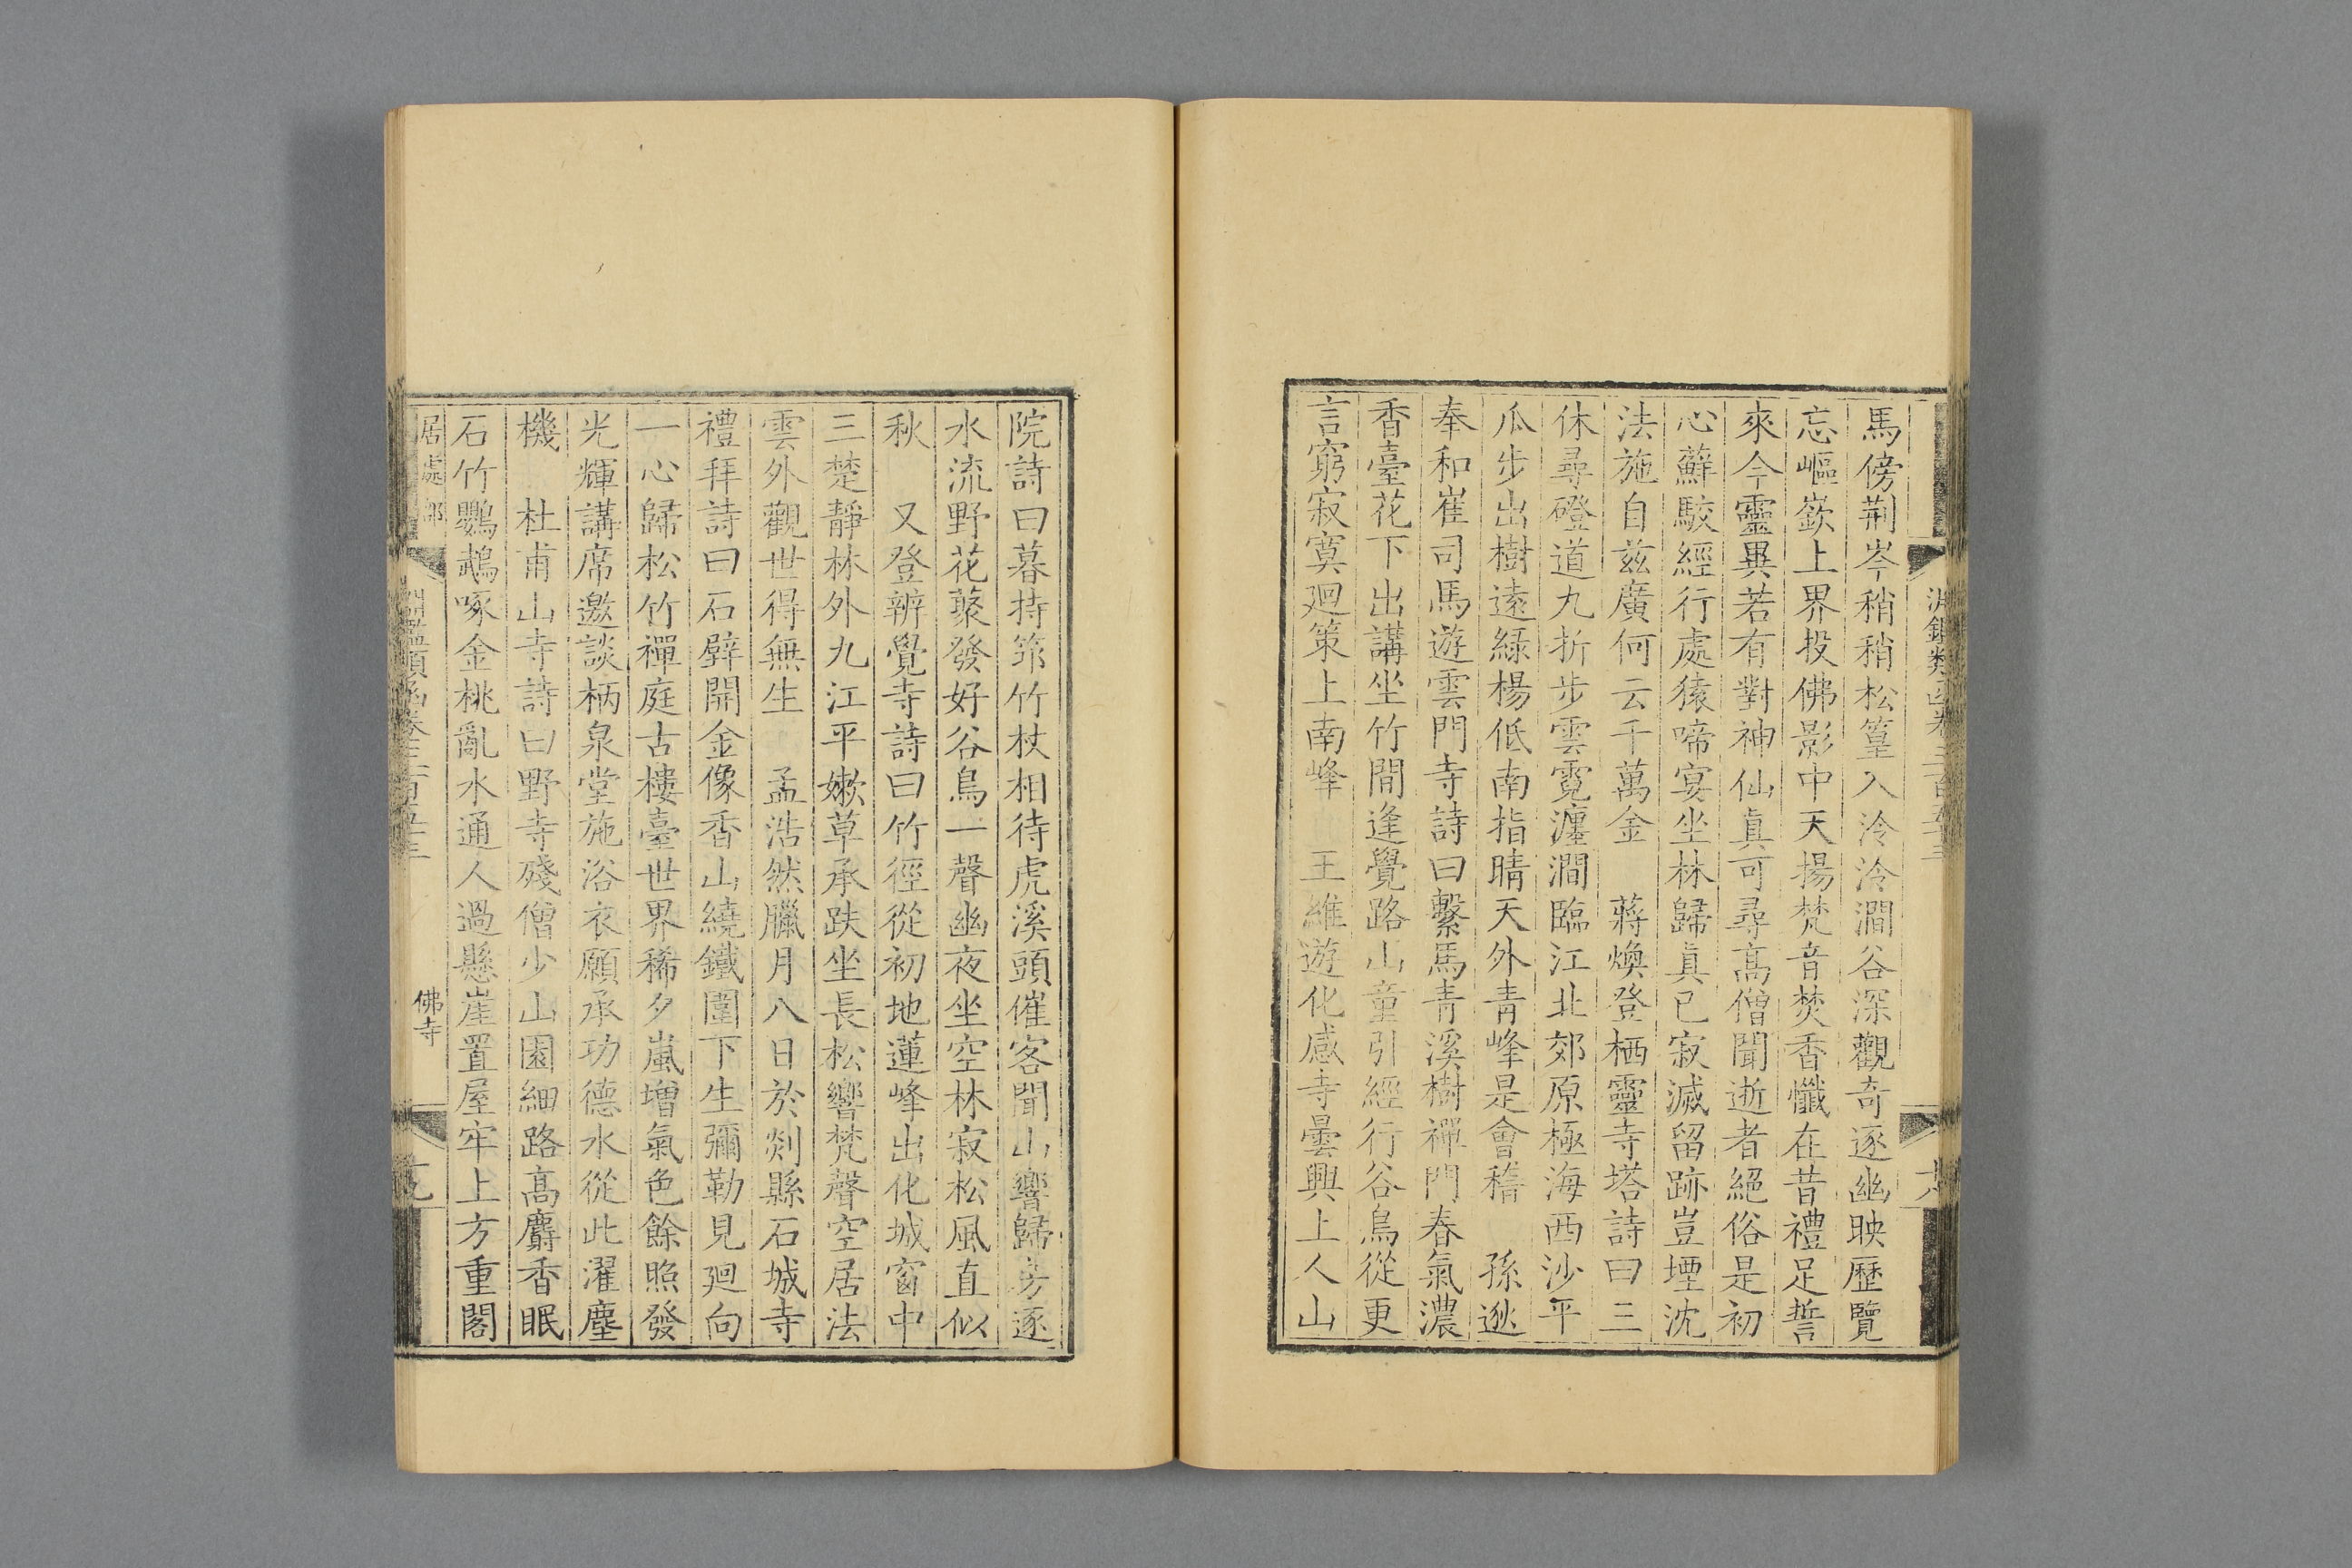 馬傍荆岑稍稍松篁入泠泠澗谷深觀奇逐幽映歷覽
忘嶇嶔上界投佛影中天揚梵音焚香懺在昔禮足誓
來今靈異若有對神仙眞可尋髙僧聞逝者絕俗是初
心蘚駮經行處猿啼宴坐林歸眞已寂滅留跡豈堙沈
法施自兹廣何云千萬金　蔣煥登栖靈寺塔詩曰三
休尋磴道九折步雲霓瀍澗臨江北郊原極海西沙平
瓜步出樹遠綠楊低南指晴天外青峰是會稽　孫逖
奉和崔司馬遊雲門寺詩曰繫馬青溪樹禪門春氣濃
香臺花下出講坐竹間逢覺路山童引經行谷鳥從更
言窮寂寞廻策上南峰　王維遊化感寺曇興上人山
院詩曰暮持筇竹杖相待虎溪頭催客聞山響歸房逐
水流野花藂發好谷鳥一聲幽夜坐空林寂松風直似
秋　又登辨覺寺詩曰竹徑從初地蓮峰出化城窗中
三楚靜林外九江平嫰草承趺坐長松響梵聲空居法
雲外觀世得無生　孟浩然臘月八日於剡縣石城寺
禮拜詩曰石壁開金像香山繞鐵圍下生彌勒見廻向
一心歸松竹禪庭古樓臺世界稀夕嵐增氣色餘照發
光輝講席邀談柄泉堂施浴衣願承功德水從此濯塵
機　杜甫山寺詩曰野寺殘僧少山園細路髙麝香眠
石竹鸚鵡啄金桃亂水通人過懸崖置屋牢上方重閣
居處部
佛寺